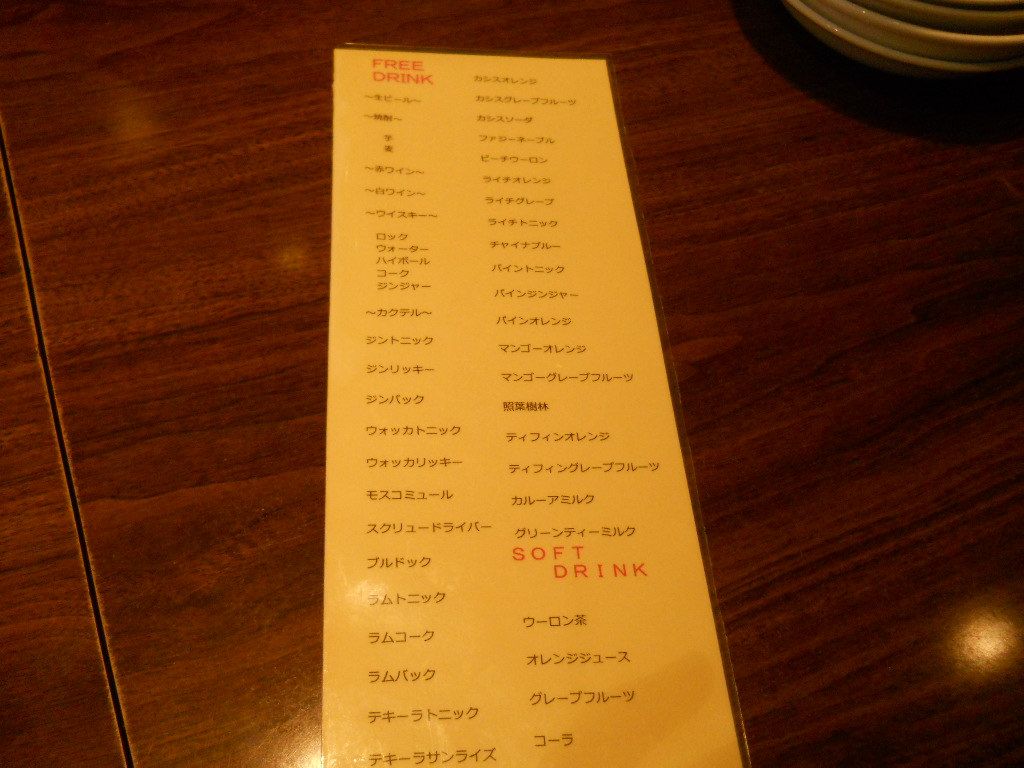 FREE
DRINK
～生ビール～
～焼酎～
芋
麦
～赤ワイン～
～白ワイン～
～ウイスキー～
ロック
ウォーター
ハイボール
コーク
ジンジャー
～カクテル～
ジントニック
ジンリッキー
ジンバック
ウォッカトニック
ウォッカリッキー
モスコミュール
スクリュードライバー
ブルドック
ラムトニック
ラムコーク
ラムバック
テキーラトニック
テキーラサンライズ
カシスオレンジ
カシスグレープフルーツ
カシスソーダ
ファジーネーブル
ピーチウーロン
ライチオレンジ
ライチグレープ
ライチトニック
チャイナブルー
パイントニック
パインジンジャー
パインオレンジ
マンゴーオレンジ
マンゴーグレープフルーツ
照葉樹林
ティフィンオレンジ
ティフィングレープフルーツ
カルーアミルク
グリーンティーミルク
SOFT
DRINK
ウーロン茶
オレンジジュース
グレープフルーツ
コーラ